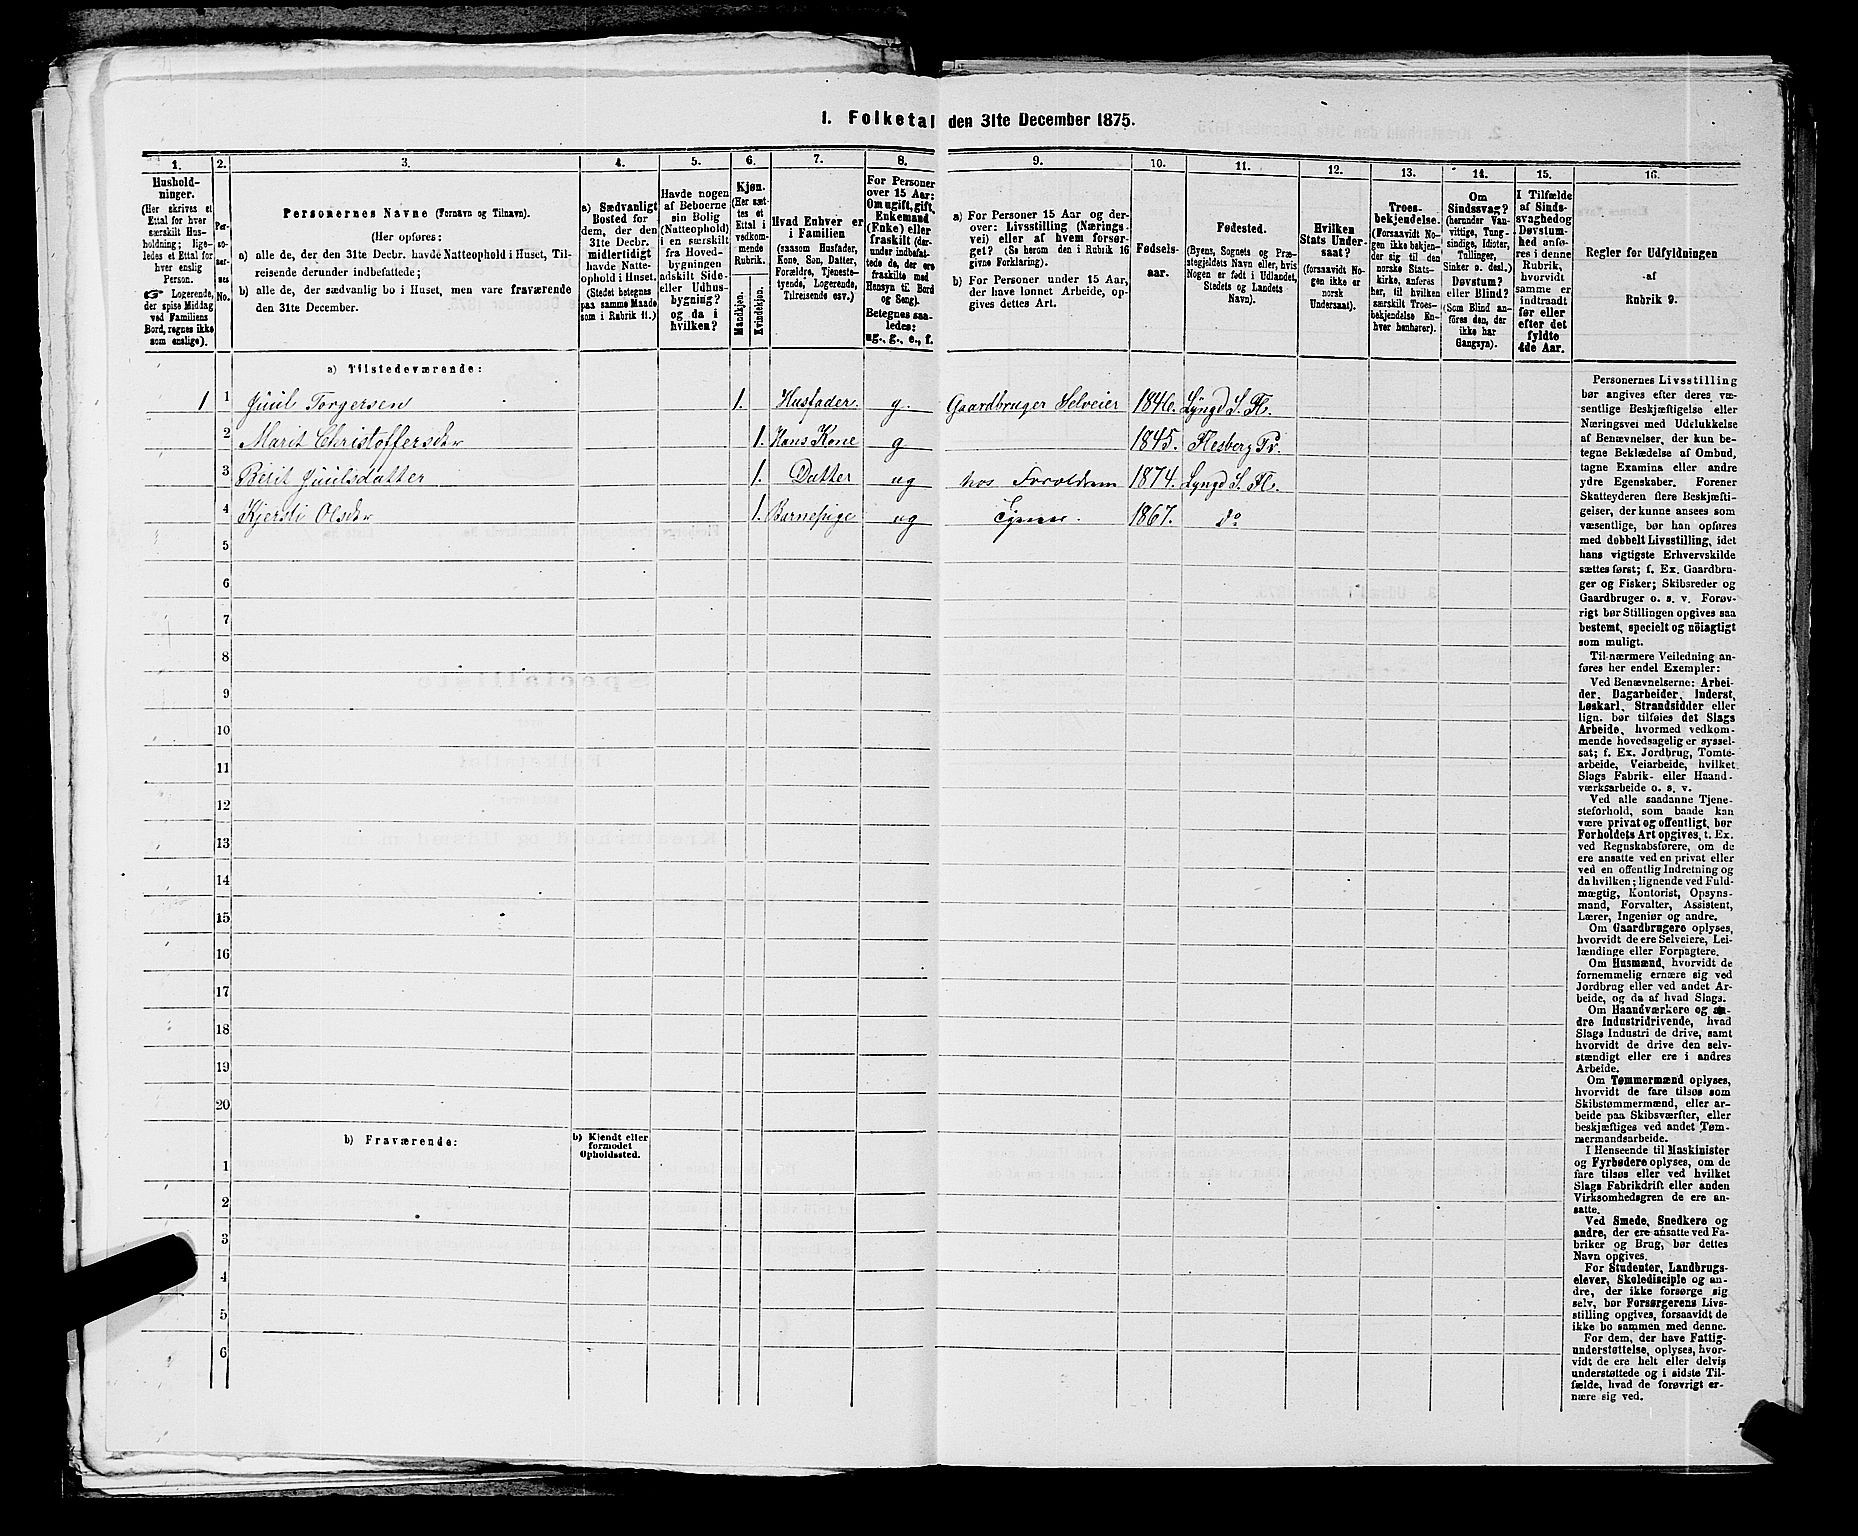 1. Folketal den 31te December 1875.
1. 2. 3. 4. 5. 6. 7. 8. 9. 10. 11. 12. 13. 14. 15. 16.
Hushold-
ninger.
(Her skrives et
Ettal for hver
særskilt Hus-
holdning; lige-
ledes et Ettal for
hver enslig
Person.
☞ Logerende,
der spise Middag
ved Familiens
Bord, regnes ikke
som enslige).
Per-
so-
ner-
nes
No.
Personernes Navne (Fornavn og Tilnavn).
(Her opføres:
a) alle de, der den 31te Decbr. havde Natteophold i Huset, Til-
reisende derunder indbefattede;
b) alle de, der sædvanlig bo i Huset, men vare fraværende
den 31te December.
a) Sædvanligt
Bosted for
dem, der den
31te Decbr.
midlertidigt
havde Natte-
ophold i Huset.
(Stedet betegnes
paa samme Maade
som i Rubrik 11.)
Havde nogen
af Beboerne
sin Bolig
(Natteophold)
i en særskilt
fra Hoved-
bygningen
adskilt Side-
eller Udhus-
bygning?
og da i
hvilken?
Kjøn.
(Her sæt-
tes et
Ettal i
vedkom-
mende
Rubrik.
Mandkjøn.
Kvindekjøn.
Hvad Enhver er
i Familien
(saasom Husfader,
Kone, Søn, Datter,
Forældre, Tjeneste-
tyende, Logerende,
Tilreisende osv.)
For Personer
over 15 Aar:
Om ugift, gift,
Enkemand
(Enke) eller
fraskilt (der-
under indbefat-
tede de, der ere
fraskilte med
Hensyn til Bord
og Seng).
Betegnes saa-
ledes:
ug., g., e., f.
a) For Personer 15 Aar og der-
over: Livsstilling (Nærings-
vei) eller af hvem forsør-
get? (Se herom den i Rubrik 16
givne Forklaring).
b) For Personer under 15 Aar,
der have lønnet Arbeide, op-
gives dettes Art.
Fødsels-
aar.
Fødested.
(Byens, Sognets og Præ-
stegjeldets Navn eller, hvis
Nogen er født i Udlandet,
Stedets og Landets
Navn).
Hvilken
Stats Under-
saat?
(forsaavidt No-
gen ikke er
norsk
Undersaat).
Troes-
bekjendelse.
(Forsaavidt No-
gen ikke bekjen-
der sig til den
norske Stats-
kirke, anføres
her, til hvilken
særskilt Troes-
bekjendelse En-
hver henhører).
Om
Sindssvag?
(herunder Van-
vittige, Tung-
sindige, Idioter,
Tullinger,
Sinker o. desl.)
Døvstum?
eller Blind?
(Som Blind an-
føres den, der
ikke har
Gangsyn).
I Tilfælde
af Sinds-
svaghed og
Døvstum-
hed anfø-
res i denne
Rubrik,
hvorvidt
samme er
indtraadt
før eller
efter det
fyldte
4de Aar.
Regler for Udfyldningen
af
Rubrik 9.
a) Tilstedeværende:
1 1 Juul Torgersen 1. Husfader g. Gaardbruger Selveier 1846. Lyngd S. Fl.
2 Marit Christoffersdtr 1. Hans Kone g 1845. Flesberg Pr.
3 Berit Juulsdatter 1. Datter ug hos Forældrene 1874. Lyngd S. Fl.
4 Kjersti Olsdtr 1. Barnepige ug 1867. do
5
6
7
8
9
10
11
12
13
14
15
16
17
18
19
20
b) Fraværende:
b) Kjendt eller
formodet
Opholdssted.
1
2
3
4
5
6
Personernes Livsstilling
bør angives efter deres væ-
sentlige Beskjæftigelse eller
Næringsvei med Udelukkelse
af Benævnelser, der kun be-
tegne Beklædelse af Ombud,
tagne Examina eller andre
ydre Egenskaber. Forener
Skatteyderen flere Beskjæfti-
gelser, der kunne ansees som
væsentlige, bør han opføres
med dobbelt Livsstilling, idet
hans vigtigste Erhvervskilde
sættes først; f. Ex. Gaardbru-
ger og Fisker; Skibsreder og
Gaardbruger o. s. v. Forøv-
rigt bør Stillingen opgives saa
bestemt, specielt og nöiagtigt
som muligt.
Til nærmere Veiledning an-
føres her endel Exempler:
Ved Benævnelserne: Arbei-
der, Dagarbeider, Inderst,
Løskarl, Strandsidder eller
lign. bør tilføies det Slags
Arbeide, hvormed vedkom-
mende hovedsagelig er syssel-
sat; f. Ex. Jordbrug, Tomte-
arbeide, Veiarbeide, hvilket
Slags Fabrik- eller Haand-
værksarbeide o. s. v.
Ved alle saadanne Tjene-
steforhold, som baade kan
være privat og offentligt, bør
Forholdets Art opgives, t. Ex.
ved Regnskabsførere, om de
ere ansatte ved en privat eller
ved en offentlig Indretning og
da hvilken; lignende ved Fuld-
mægtig, Kontorist, Opsyns-
mand, Forvalter, Assistent,
Lærer, Ingeniør og andre.
Om Gaardbrugere oplyses,
hvorvidt de ere Selveiere, Lei-
lændinge eller Forpagtere.
Om Husmænd, hvorvidt de
fornemmelig ernære sig ved
Jordbrug eller ved andet Ar-
beide, og da af hvad Slags.
Om Haandværkere og an-
dre Industridrivende, hvad
Slags Industri de drive, samt
hvorvidt de drive den selv-
stændigt eller ere i andres
Arbeide.
Om Tømmermænd oplyses,
hvorvidt de fare tilsøs som
Skibstømmermænd, eller ar-
beide paa Skibsværfter, eller
beskjæftiges ved andet Tøm-
mermandsarbeide.
I Henseende til Maskinister
og Fyrbødere oplyses, om de
fare tilsøs eller ved hvilket
Slags Fabrikdrift eller anden
Virksomhedsgren de ere an-
satte.
Ved Smede, Snedkere og
andre, der ere ansatte ved Fa-
briker og Brug, bør dettes
Navn opgives.
For Studenter, Landbrugs-
elever, Skoledisciple og an-
dre, der ikke forsørge sig
selv, bør Forsørgerens Livs-
stilling opgives, forsaavidt de
ikke bo sammen med denne.
For dem, der have Fattig-
understøttelse, oplyses, hvor-
vidt de ere helt eller delvis
understøttede og i sidste Til-
fælde, hvad de forøvrigt er-
nære sig ved.